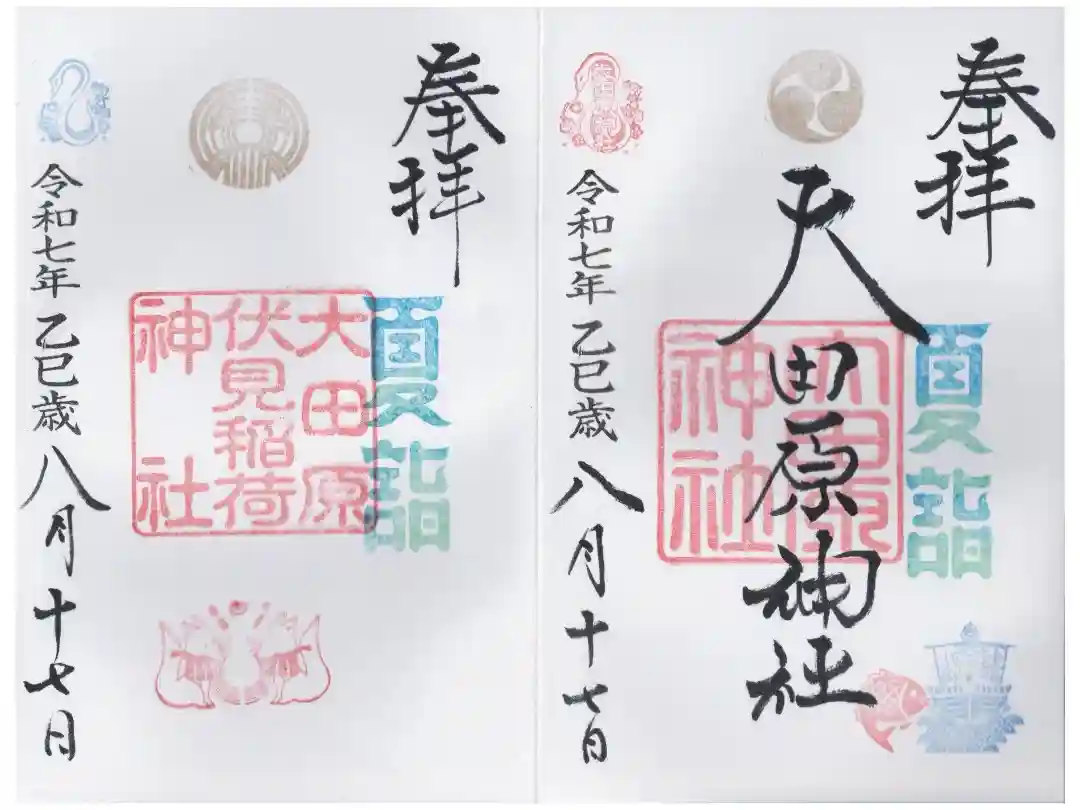 奉拝
夏詣
大田原神社
大田原
神社
令和七年乙巳歳八月十七日
奉拝
夏詣
大田原
伏見稲荷
神社
令和七年乙巳歳八月十七日